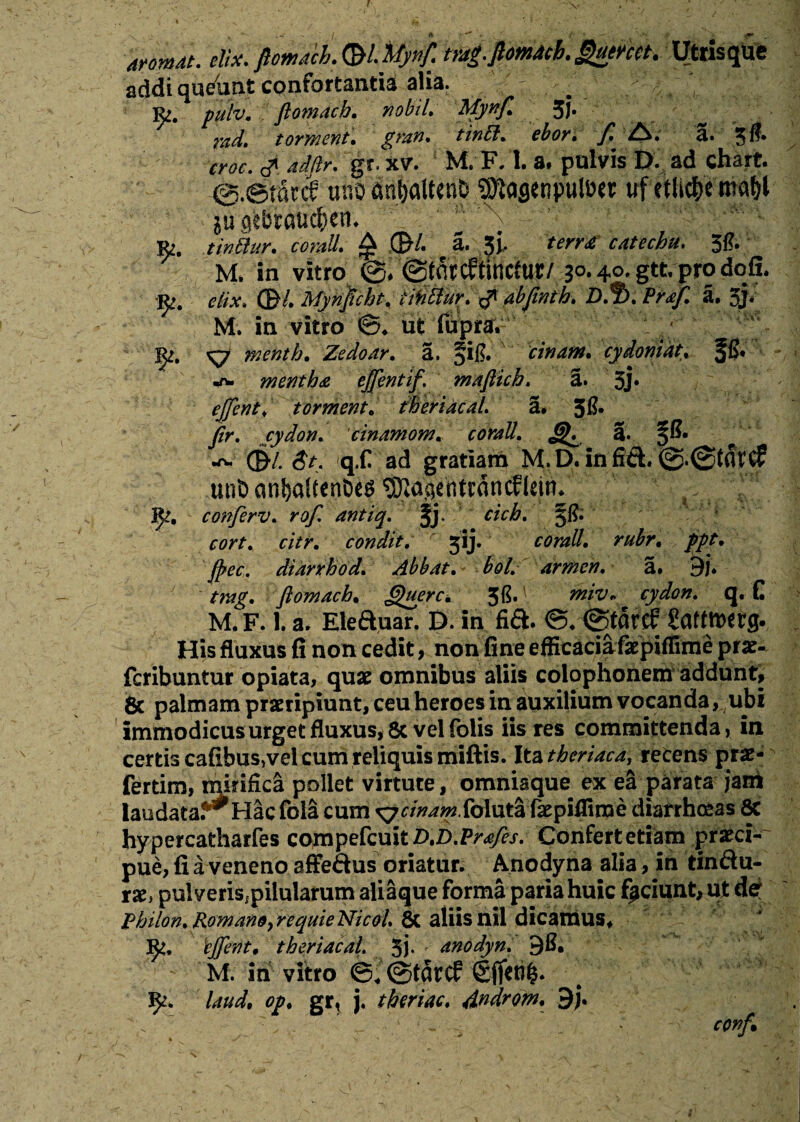 aromat. elix. stomach. ⊕l. Mynſ. trag. ſtomach. Quercet. Utrisque
addi queunt confortantia alia.
℞. pulv. ſtomach. nobil. Mynſ. ʒj.
rad. torment. gran. tinct. ebor. ſ. △. ā. ʒß.
croc. ♂ adſtr. gr. xv. M. F. l. a. pulvis D. ad chart.
S. Starck und anhaltend Magenpulver uf etliche mahl
zu gebrauchen.
℞. tinctur. corall. ⊕l. ā. ʒj. terræ catechu. ʒß.
M. in vitro S. Starcktinctur/ 30. 40. gtt. pro doſi.
℞. elix. ⊕l. Mynſicht. tinctur. ♂ abſinth. D.D. Præſ. ā. ʒj.
M. in vitro S. ut ſupra.
℞. ▽ menth. Zedoar. ā. ℥iß. cinam. cydoniat. ℥ß.
menthæ eſſentif. maſtich. ā. ʒj.
eſſent. torment. theriacal. ā. ʒß.
ſir. cydon. cinamom. corall. Q. ā. ℥ß.
⊕l. &t. q.ſ. ad gratiam M. D. in fict. S. Starck
und anhaltendes Magenträncklein.
℞. conſerv. roſ. antiq. ℥j. cich. ℥ß.
cort. citr. condit. ʒij. corall. rubr. ppt.
ſpec. diarrhod. Abbat. bol. armen. ā. ℈j.
trag. ſtomach. Querc. ʒß. miv. cydon. q. ſ.
M. F. l. a. Electuar. D. in fict. S. Starck Lattwerg.
His fluxus ſi non cedit, non ſine efficacia ſæpiſſime præ-
ſcribuntur opiata, quæ omnibus aliis colophonem addunt,
& palmam præripiunt, ceu heroes in auxilium vocanda, ubi
immodicus urget fluxus, & vel ſolis iis res committenda, in
certis caſibus, vel cum reliquis miſtis. Ita theriaca, recens præ-
ſertim, mirifica pollet virtute, omniaque ex ea parata jam
laudata. Hâc ſolâ cum ▽ cinam. ſoluta ſæpiſſime diarrhœas &
hypercatharſes compeſcuit D.D. Præſes. Confert etiam præci-
pue, ſi à veneno affectus oriatur. Anodyna alia, in tinctu-
ræ, pulveris, pilularum aliaque forma paria huic faciunt, ut de
Philon. Romano, requie Nicol. & aliis nil dicamus.
℞. eſſent. theriacal. ʒj. anodyn. ℈ß.
M. in vitro S. Starck Eſſentz.
℞. laud. op. gr. j. theriac. Androm. ℈j.
conf.